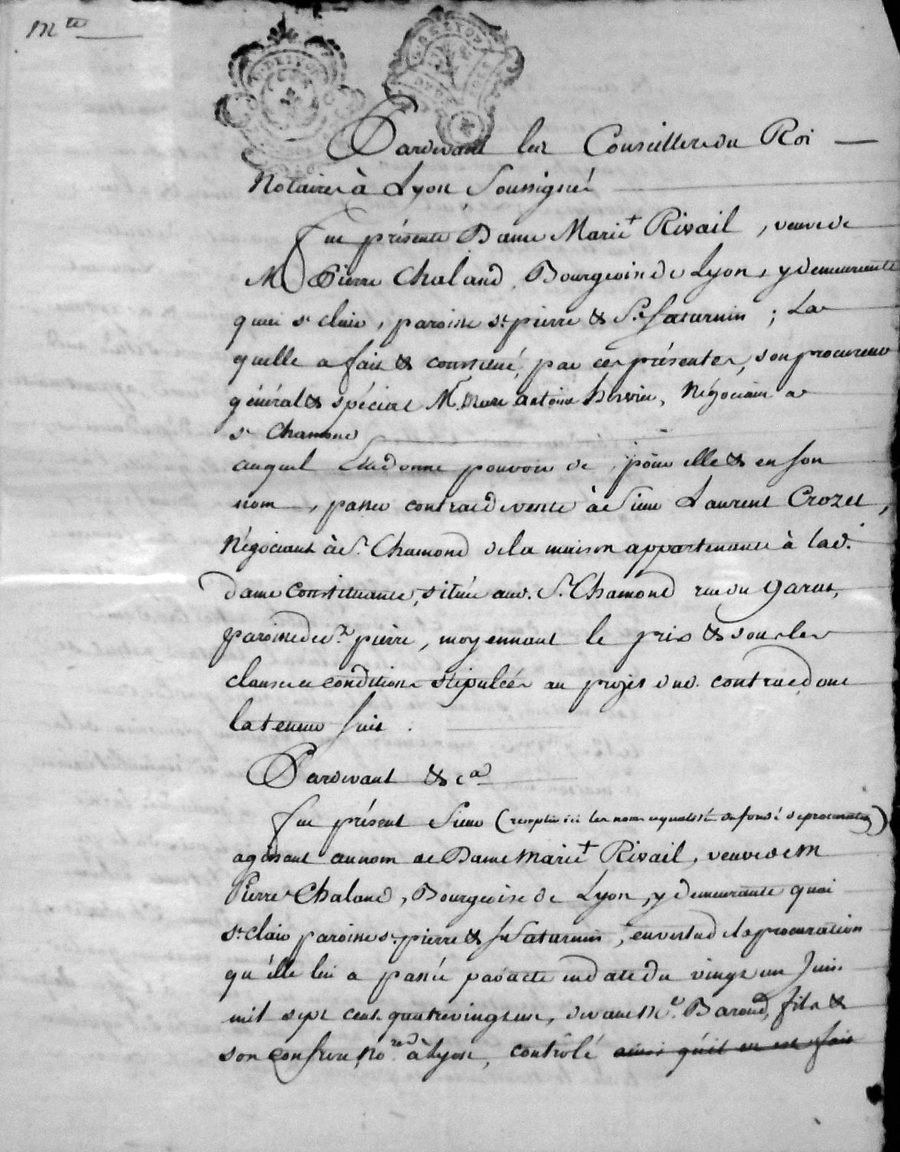 Mte
Pardevant les Conseillers du Roi
Notaires à Lyon Soussignés
fut présente Dame Marie + Rivail, veuve de
M Pierre Chaland Bourgeois de Lyon, y demeurante
quai st clair, paroisse st pierre & St. Saturnin ; La
quelle a fait & constitué par ces présentes, son procureur
général & spécial Mr. Marc Antoine Negociant a
st Chamond
auquel Elle donne pouvoir de, pour elle & en son
nom, passer contract de vente à Sieur Laurent Crozet,
Négociant à St. Chamond de la maison appartenante à lad.
dame Constituante, située aud. St. Chamond rue du Garat,
paroisse de St. pierre, moyennant le prix & sous les
clauses et conditions stipulées au projet dud. contract, dont
la teneur suit.
Pardevant & ca
fut présent Sieur (remplir ici les noms et qualités du fondé de procuration)
agissant au nom de Dame Marie + Rivail, veuve de M
Pierre Chaland, Bourgeois de Lyon, y demeurante quai
st. clair paroisse st. pierre & St Saturnin, en vertu de la procuration
qu'elle lui a passée par acte en date du vingt un Juin
mil sept cent quatrevingt un, devant Me. Baroud, fils &
son confrere, nores. à Lyon, controlé ainsi qu'il en est fait